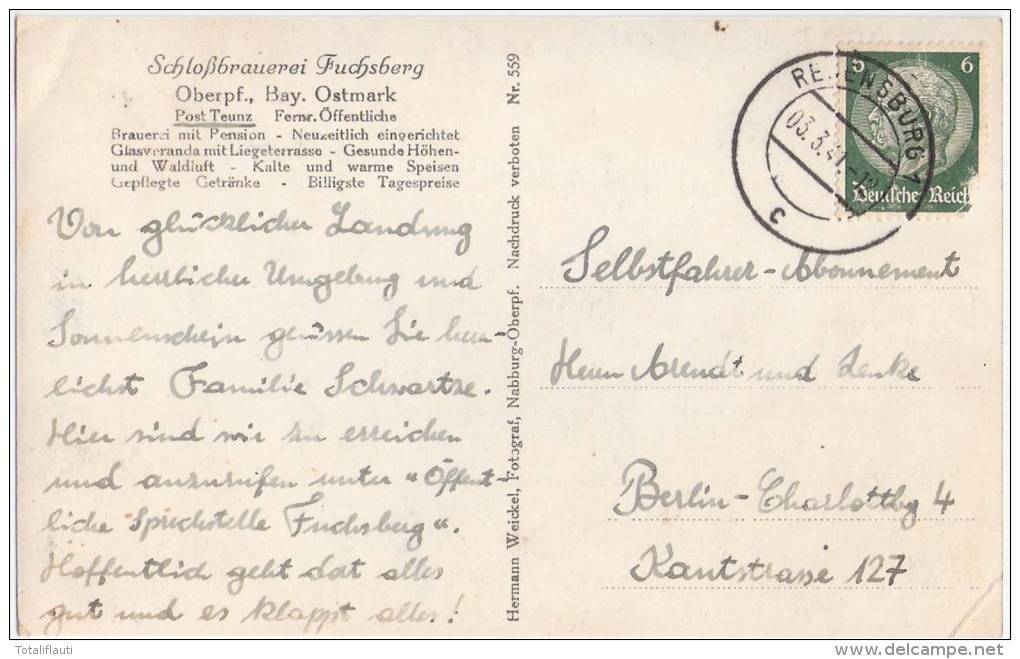 Schloßbrauerei Fuchsberg
Oberpf., Bay. Ostmark
Post Teunz Fernr. Öffentliche
Brauerei mit Pension - Neuzeitlich eingerichtet
Glasveranda mit Liegeterrasse - Gesunde Höhen-
und Waldluft - Kalte und warme Speisen
Gepflegte Getränke - Billigste Tagespreise
Von glücklicher Landung
in herrlicher Umgebung und
Sonnenschein grüssen Sie herz-
lichst Familie Schwartze.
Hier sind wir zu erreichen
und anzurufen unter "Öffent-
liche Sprechstelle Fuchsberg".
Hoffentlich geht dort alles
gut und es klappt alles!
Hermann Weickel, Fotograf, Nabburg-Oberpf. Nachdruck verboten Nr. 559
6 6
Deutsches Reich
REGENSBURG 1
03.3.41.-12
c
Selbstfahrer-Abonnement
Herrn Arendt und
Berlin-Charlottbg 4
Kantstrasse 127
Totaliflauti
www.delcampe.net